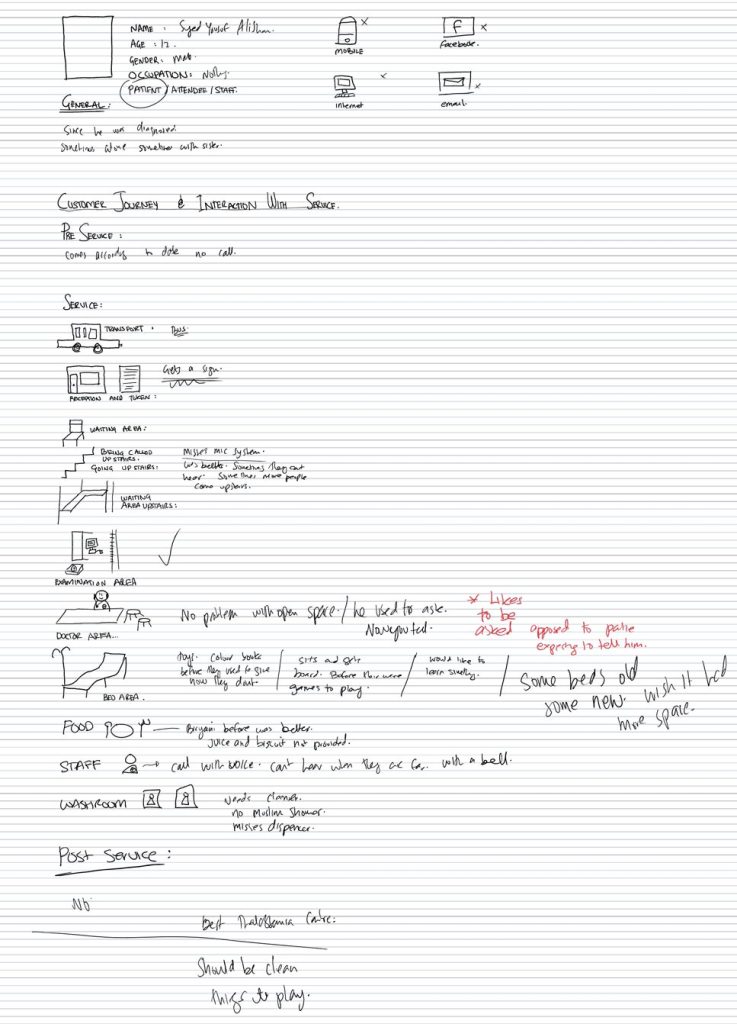 NAME : Syed Yousuf Alishan.
AGE : 12.
GENDER: Male.
OCCUPATION: Nothing.
PATIENT / ATTENDEE / STAFF.
x
MOBILE
x
facebook.
x
internet
x
email
GENERAL:
Since he was diagnosed.
Sometimes alone sometimes with sister.
CUSTOMER JOURNEY & INTERACTION WITH SERVICE.
PRE SERVICE:
Comes according to date no call.
SERVICE:
TRANSPORT.
Gets a sign.
RECEPTION AND TOKEN:
WAITING AREA:
BEING CALLED UPSTAIRS.
GOING UPSTAIRS:
Misses mic system.
Was better. Sometimes they cant
hear. Sometimes more people
come upstairs.
WAITING
AREA UPSTAIRS:
EXAMINATION AREA
DOCTOR AREA..
No problem with open space. / he used to ask.
Now
* Likes
to be
asked opposed to
to tell him.
BED AREA.
toys. Colour books
before they used to give
now they dont.
/ sits and gets
board. Before there were
games to play.
/ would like to
learn something.
/ some beds old
some new. wish it had
more space.
FOOD — Biryani before was better.
Juice and biscuit not provided.
STAFF → call with voice. cant hear when they are far. with a bell.
WASHROOM
needs cleaner.
no muslim shower.
misses dispencer.
Post Service :
No
Best Thalassemia Centre:
Should be clean
things to play.